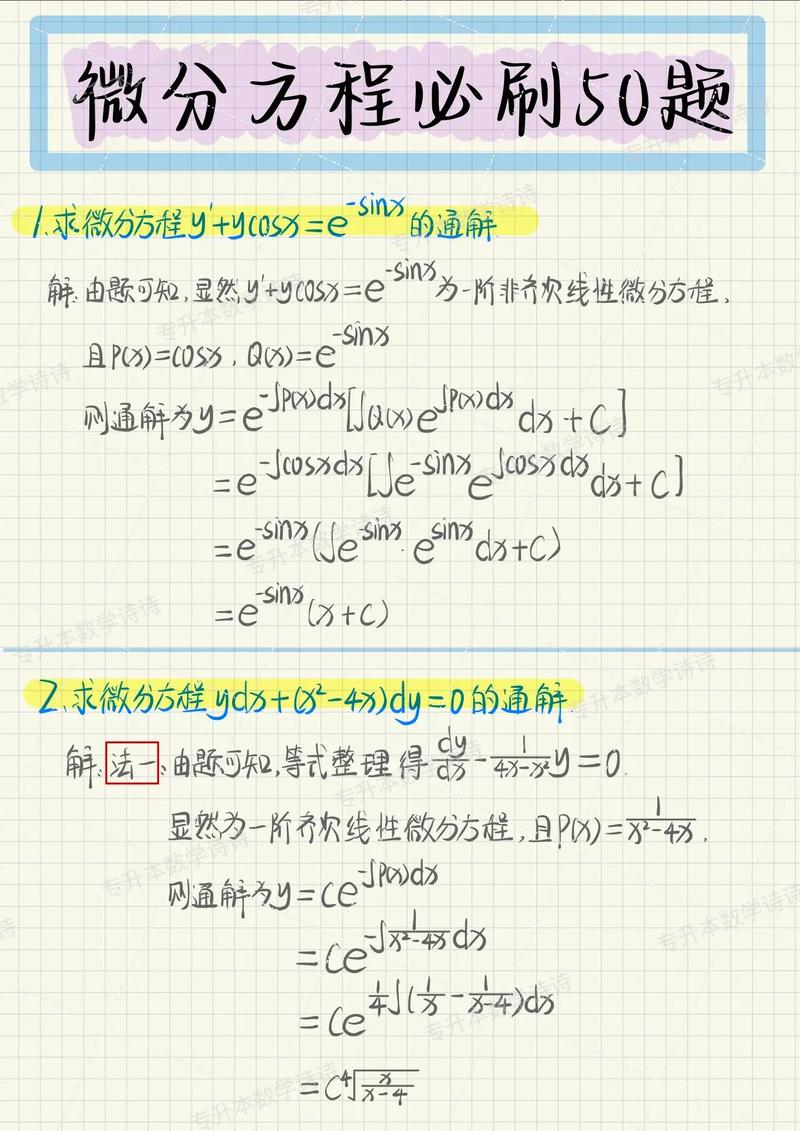 微分方程必刷50题
1.求微分方程y'+ycosx=e^{-sinx}的通解.
解:由题可知,显然y'+ycosx=e^{-sinx}为一阶非齐次线性微分方程,
且P(x)=cosx,Q(x)=e^{-sinx}
则通解为y=e^{-∫P(x)dx}[∫Q(x)e^{∫P(x)dx}dx+C]
=e^{-∫cosxdx}[∫e^{-sinx}e^{∫cosxdx}dx+C]
=e^{-sinx}(∫e^{-sinx}·e^{sinx}dx+C)
=e^{-sinx}(x+C)
2.求微分方程ydx+(x²-4x)dy=0的通解.
解:法一:由题可知,等式整理得\frac{dy}{dx}-\frac{1}{4x-x²}y=0.
显然为一阶齐次线性微分方程,且P(x)=\frac{1}{x²-4x},
则通解为y=Ce^{-∫P(x)dx}
=Ce^{-∫\frac{1}{x²-4x}dx}
=Ce^{\frac{1}{4}∫(\frac{1}{x}-\frac{1}{x-4})dx}
=C\sqrt[4]{\frac{x}{x-4}}
专升本数学诗诗